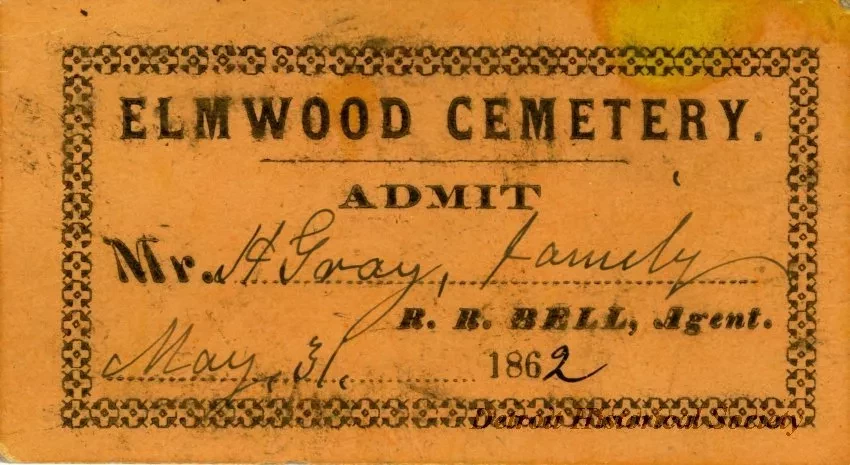 ELMWOOD CEMETERY.
ADMIT
Mr. H Gray, family
R. R. BELL, Agent.
May, 31, 1862
Detroit Historical Society